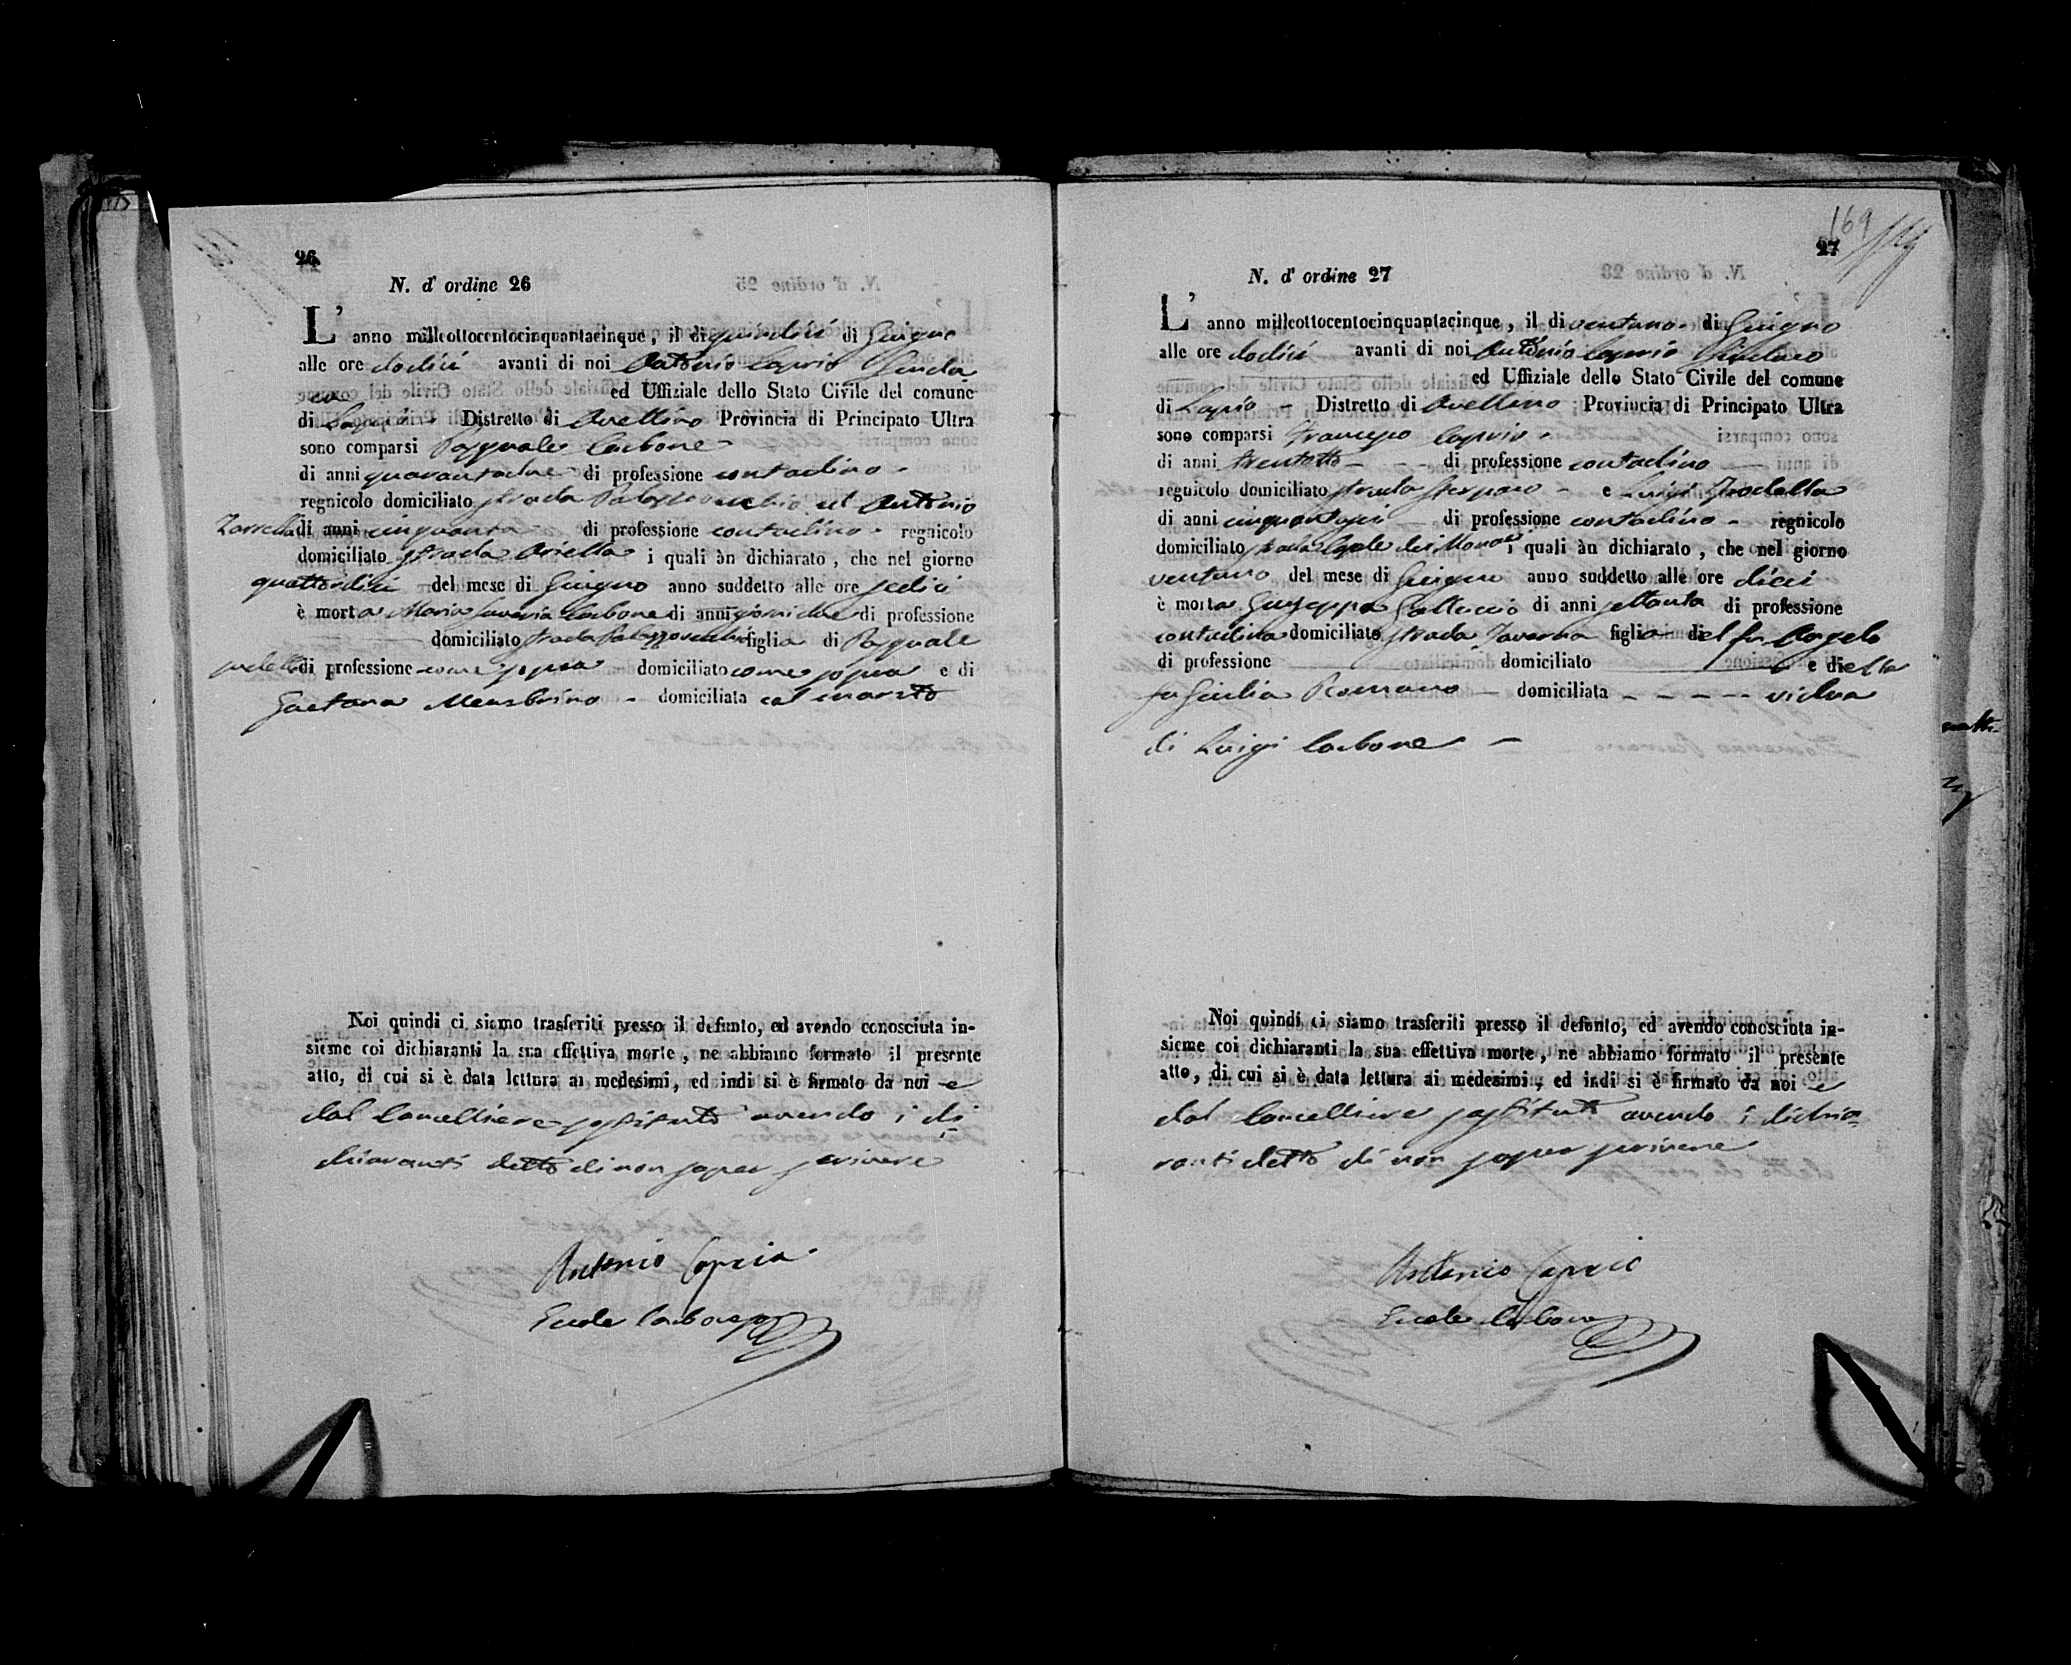 26
N. d' ordine 26
L' anno milleottocentocinquantacinque, il di quindici di Giugno
alle ore dodici avanti di noi Antonio Caprio Sinda
co ed Uffiziale dello Stato Civile del comune
di Lapio Distretto di Avellino Provincia di Principato Ultra
sono comparsi Pasquale Carbone
di anni quarantadue di professione contadino
regnicolo domiciliato strada Palazzo vecchio ed Antonio
Zarrella di anni cinquanta di professione contadino regnicolo
domiciliato strada Ariella i quali àn dichiarato, che nel giorno
quattordici del mese di Giugno anno suddetto alle ore sedici
è morta Maria Saveria Carbone di anni giorni due di professione
domiciliato strada Palazzo vecchio figlia di Pasquale
sudetto di professione come sopra domiciliato come sopra e di
Gaetana domiciliata col marito
Noi quindi ci siamo trasferiti presso il defunto, ed avendo conosciuta in-
sieme coi dichiaranti la sua effettiva morte, ne abbiamo formato il presente
atto, di cui si è data lettura ai medesimi, ed indi si è firmato da noi e
dal Cancelliere sostituto avendo i di
chiaranti detto di non saper scrivere
Antonio Caprio
Ercole Carbone
169
27
N. d' ordine 27
L' anno milleottocentocinquantacinque, il di ventuno di Giugno
alle ore dodici avanti di noi Antonio Caprio Sindaco
ed Uffiziale dello Stato Civile del comune
di Lapio Distretto di Avellino Provincia di Principato Ultra
sono comparsi Francesco Caprio
di anni trentotto di professione contadino
regnicolo domiciliato strada e Luigi
di anni cinquantasei di professione contadino regnicolo
domiciliato strada dei i quali àn dichiarato, che nel giorno
ventuno del mese di Giugno anno suddetto alle ore dieci
è morta Giuseppa Galluccio di anni settanta di professione
contadina domiciliato strada Taverna figlia del fu Angelo
di professione domiciliato e della
fu Giulia Romano domiciliata vedova
di Luigi Carbone
Noi quindi ci siamo trasferiti presso il defunto, ed avendo conosciuta in-
sieme coi dichiaranti la sua effettiva morte, ne abbiamo formato il presente
atto, di cui si è data lettura ai medesimi, ed indi si è firmato da noi e
dal Cancelliere sostituto avendo i dichia=
ranti detto di non saper scrivere
Antonio Caprio
Ercole Carbone